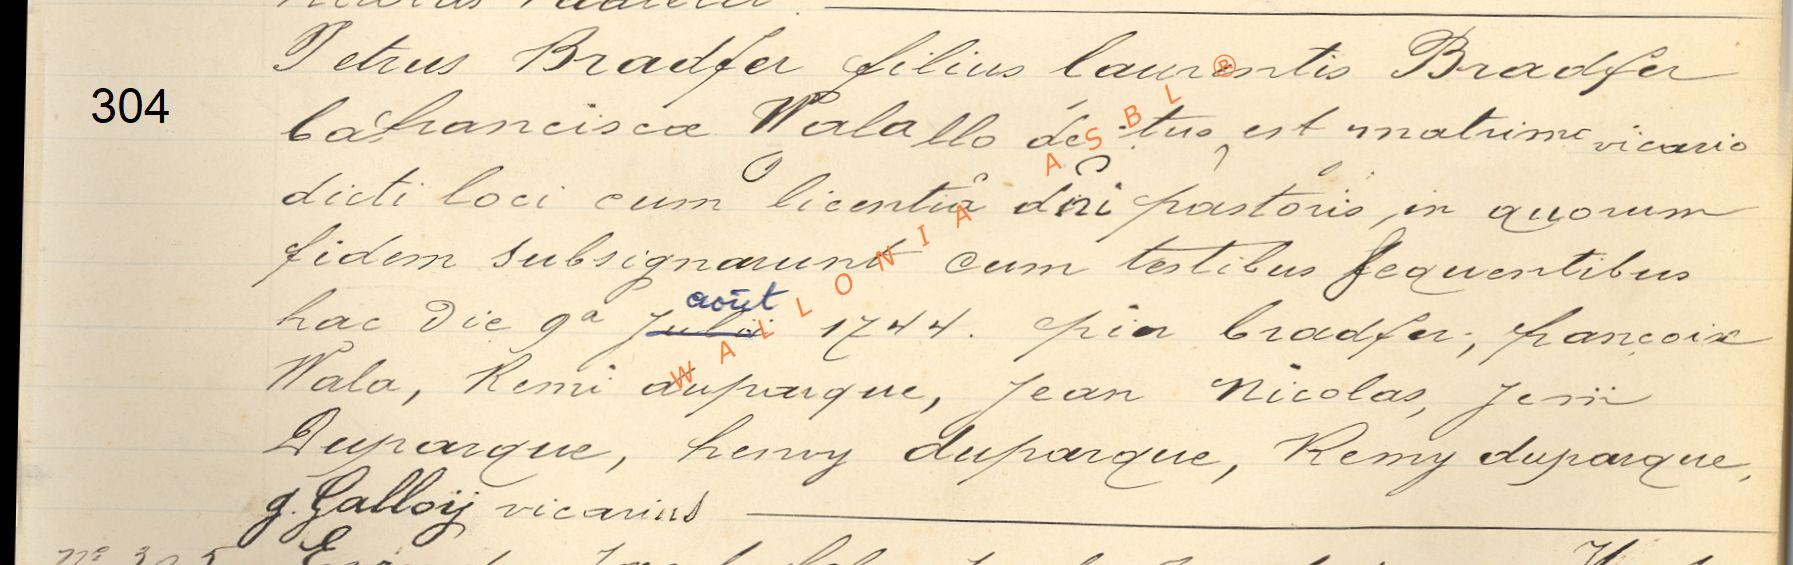 Petrus Bradfer filius laurentis Bradfer
304
francisca Walallo est vicario
dicti loci cum licentiâ dni pastoris, in quorum
fidem subsignarunt cum testibus sequentibus
août
hac Die 9a Julii 1744. pier bradfer, françoix
Wala, Remi duparque, Jean Nicolas,
Duparque, henry duparque, Remy duparque,
g. Galloÿ vicarius
WALLONIA ASBL ®
N° 305